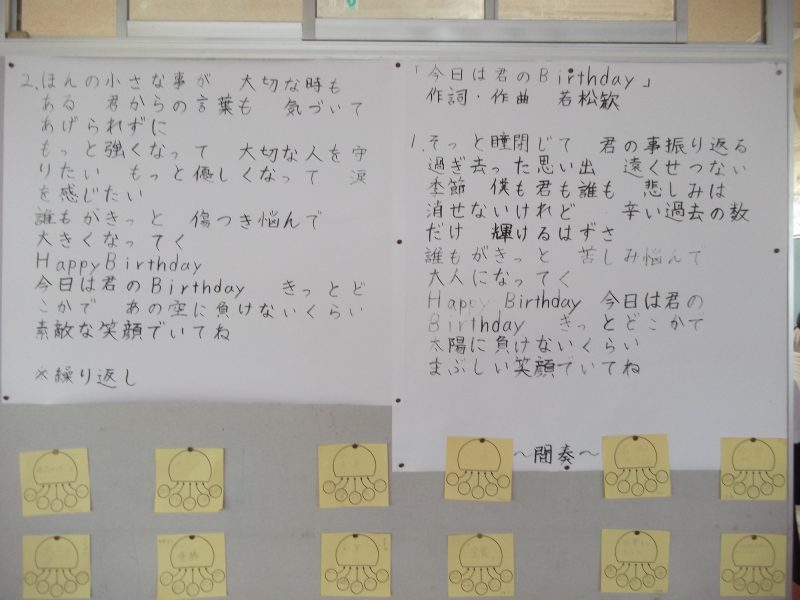 「今日は君のBirthday」
作詞・作曲 若松歓
1.そっと瞳閉じて 君の事振り返る
過ぎ去った思い出 遠くせつない
季節 僕も君も誰も 悲しみは
消せないけれど 辛い過去の数
だけ 輝けるはずさ
誰もがきっと 苦しみ悩んで
大人になってく
Happy Birthday 今日は君の
Birthday きっとどこかで
太陽に負けないくらい
まぶしい笑顔でいてね
〜間奏〜
2.ほんの小さな事が 大切な時も
ある 君からの言葉も 気づいて
あげられずに
もっと強くなって 大切な人を守
りたい もっと優しくなって 涙
を感じたい
誰もがきっと 傷つき悩んで
大きくなってく
HappyBirthday
今日は君のBirthday きっとど
こかで あの空に負けないくらい
素敵な笑顔でいてね
※繰り返し